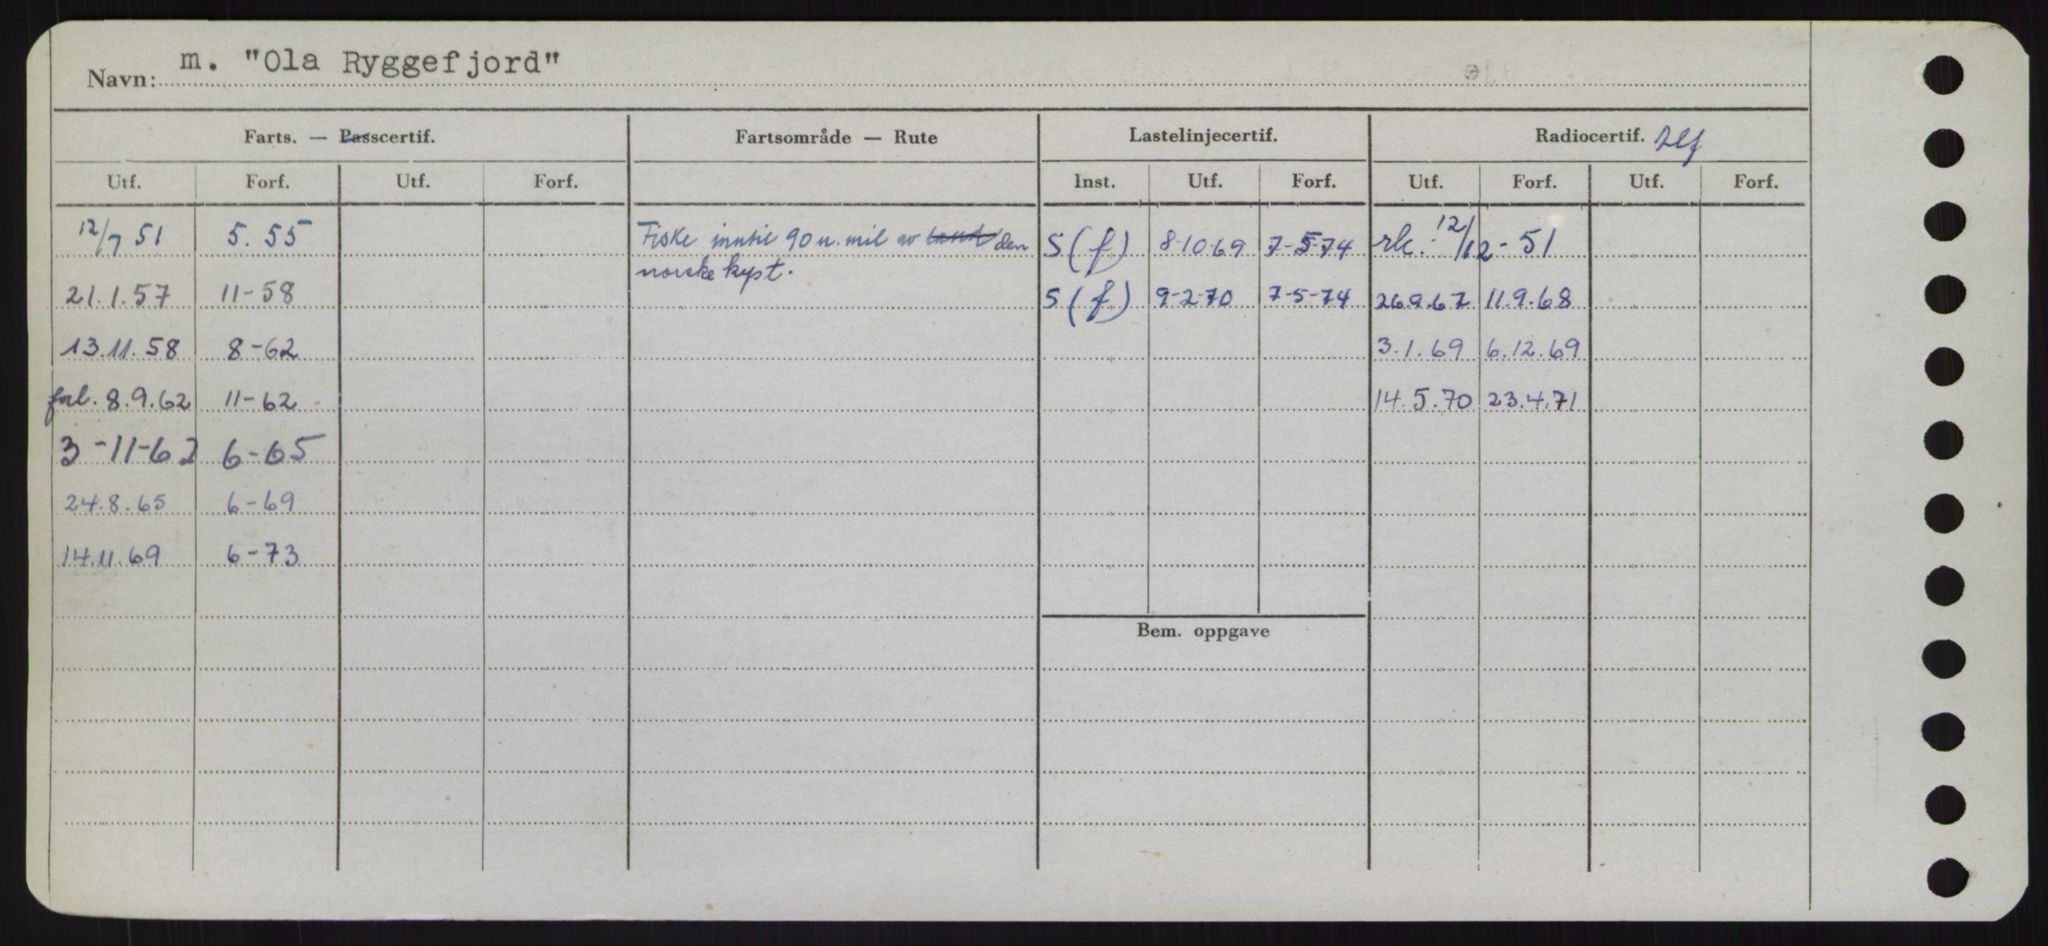 Navn: m. "Ola Ryggefjord"
Farts. — Passcertif. Fartsområde — Rute Lastelinjecertif. Radiocertif. Tlf
Utf. Forf. Utf. Forf. Inst. Utf. Forf. Utf. Forf. Utf. Forf.
12/7 51 5. 55 Fiske inntil 90 n. mil av land den S (f) 8-10-69 7-5-74 rk. 12/12-51
norske kyst.
21.1.57 11-58 S (f) 9-2-70 7-5-74 26.9.67 11.9.68
13.11.58 8-62 3.1.69 6.12.69
forl. 8.9.62 11-62 14.5.70 23.4.71
3-11-62 6-65
24.8.65 6-69
14.11.69 6-73
Bem. oppgave